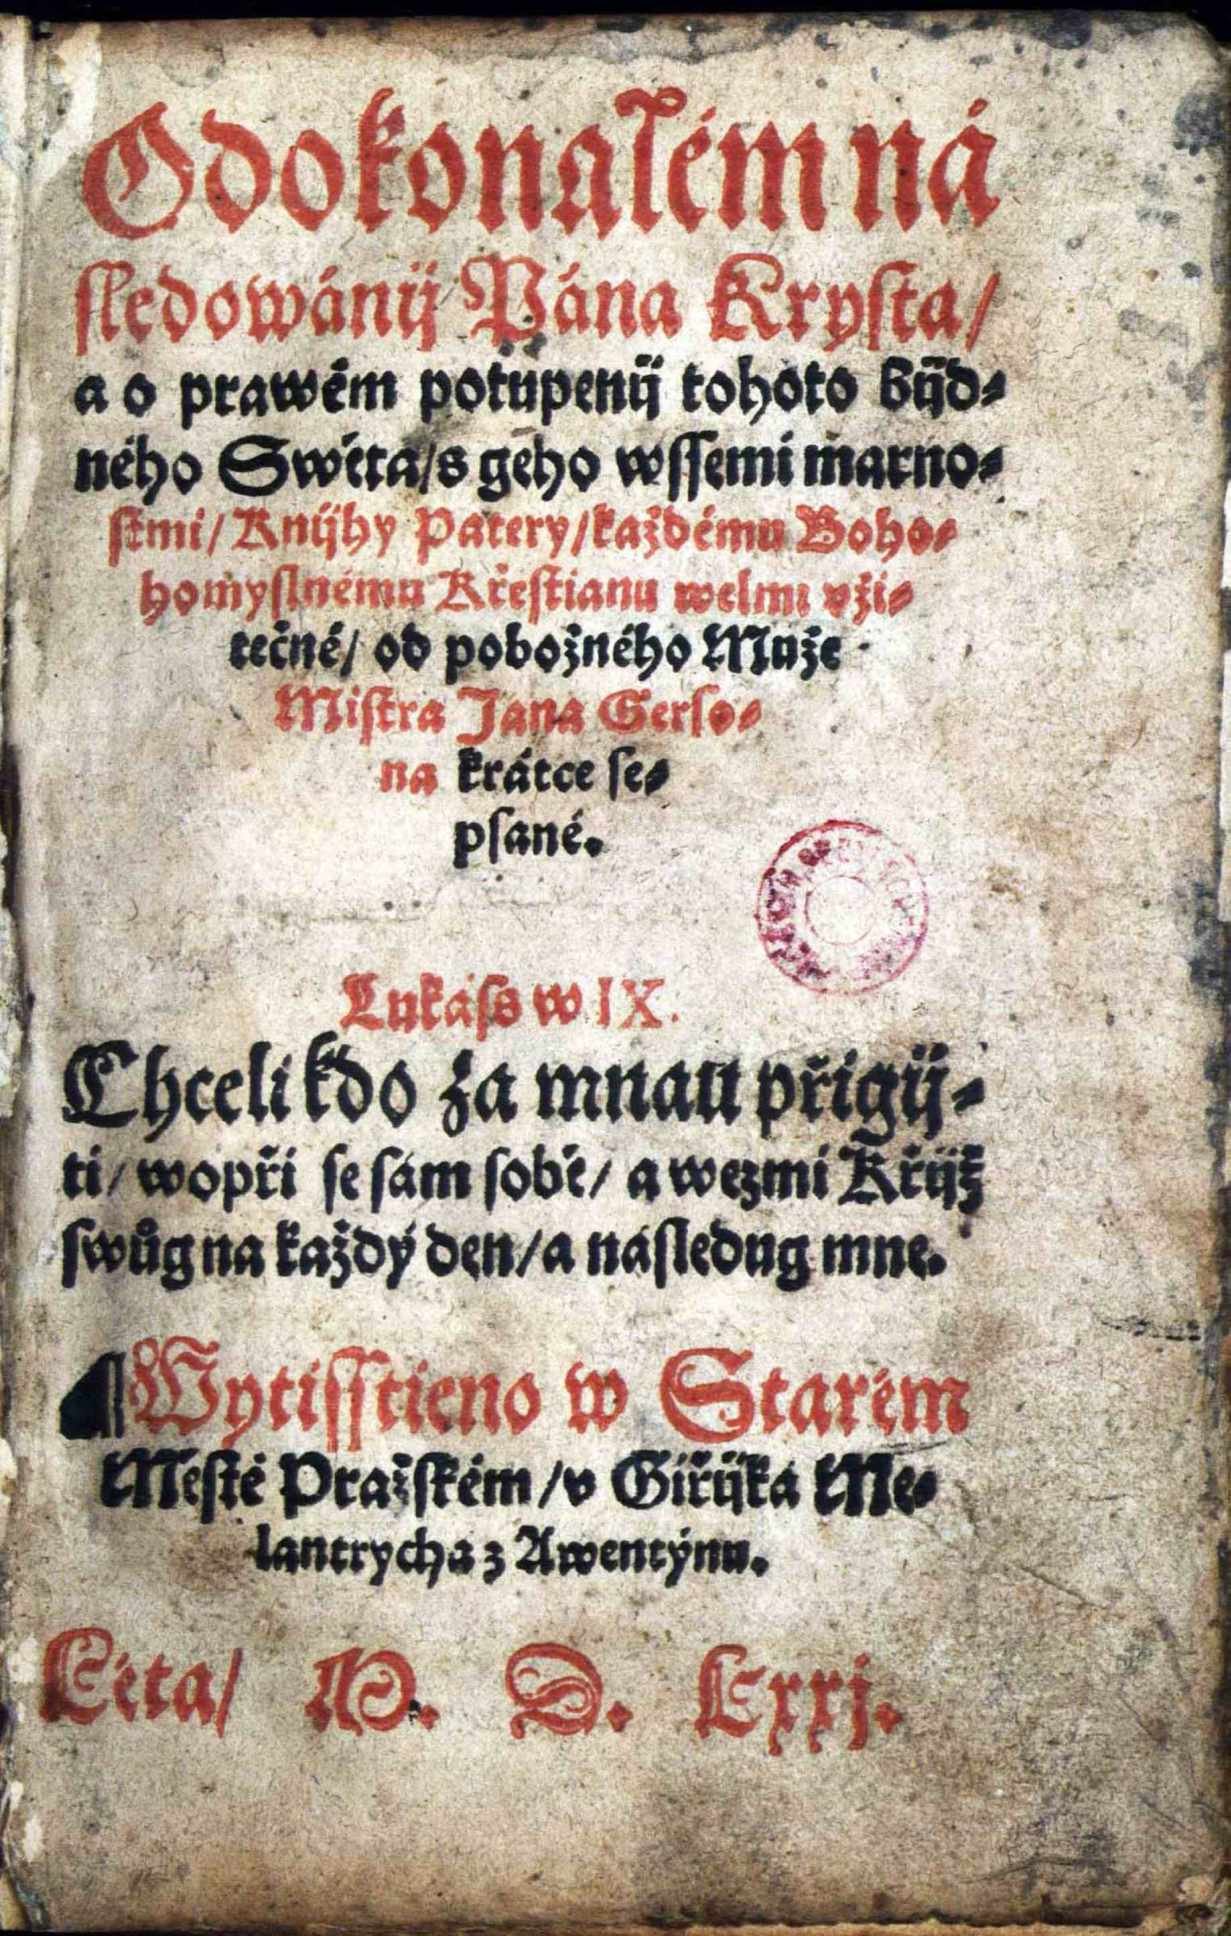 Odokonalém ná
sledowánij Pána Krysta/
a o prawém potupenij tohoto bijd-
ného Swěta/s geho wssemi marno-
stmi/ Knijhy Patery/každému Boho-
homyslnému Křestianu welmi vži-
tečné/ od pobožného Muže
Mistra Jana Gerso-
na krátce se-
psané.
Lukáss w IX.
Chceli kdo za mnau přigij-
ti/ wopři se sám sobě/ a wezmi Křijž
swůg na každý den/a následug mne.
¶Wytisstieno w Starém
Městě Pražském/v Giřijka Me-
lantrycha z Awentýnu.
Léta/ M. D. Lxxj.